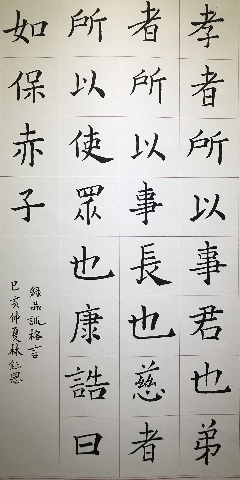 孝者所以事君也弟
者所以事長也慈者
所以使眾也康誥曰
如保赤子
錄品誠格言
己亥仲夏林鈺恩